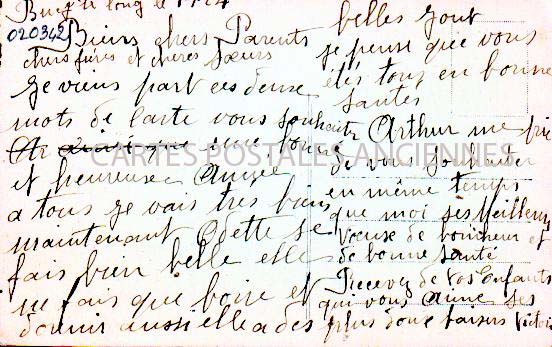 le long le
020342
Biens chers Parents
chers frères et chères sœurs
je viens part ces deux
mots de carte vous souhaiter
une bonne
et heureuse Année
a tous je vais tres bien
maintenant Odette se
fais bien belle elle
ne fais que boire et
dormir aussi elle a des
belles jout
je pense que vous
êtes tous en bonne
santes
Arthur me prie
de vous souhaiter
en même temps
que moi ses Meilleurs
Vœuse de bonheur et
de bonne santé
Recevez de Vos Enfants
qui vous Aime ses
plus doux baisers Victor
CARTES POSTALES ANCIENNES